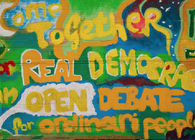 Come Together
for REAL DEMOCRA
an OPEN DEBATE
for ordinari peop